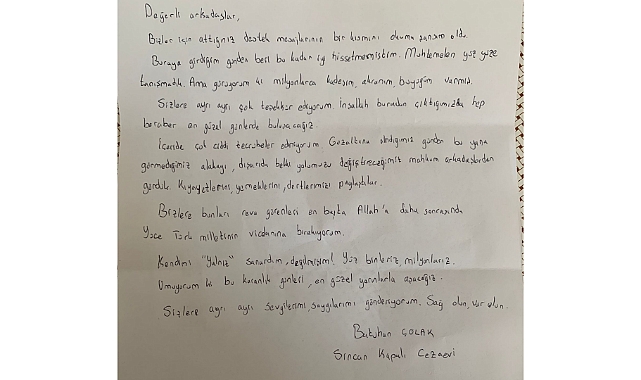 Değerli arkadaşlar,
Bizler için attığınız destek mesajlarının bir kısmını okuma şansım oldu.
Buraya girdiğim günden beri bu kadar iyi hissetmemiştim. Muhtemelen yüz yüze
tanışmadık. Ama görüyorum ki milyonlarca kardeşim, akranım, büyüğüm varmış.
Sizlere ayrı ayrı çok teşekkür ediyorum. İnşallah buradan çıktığımızda hep
beraber en güzel günlerde buluşacağız.
İçeride çok ciddi tecrübeler ediniyorum. Gözaltına alındığımız günden bu yana
görmediğimiz alakayı, dışarıda belki yolumuzu değiştireceğimiz mahkum arkadaşlardan
gördük. Kıyafetlerini, yemeklerini, dertlerimizi paylaştılar.
Bizlere bunları reva görenleri en başta Allah'a daha sonrasında
Yüce Türk milletinin vicdanına bırakıyorum.
Kendimi "Yalnız" sanardım, değilmişim! Yüz binleriz, milyonlarız.
Umuyorum ki bu karanlık günleri, en güzel yarınlarla aşacağız.
Sizlere ayrı ayrı sevgilerimi, saygılarımı gönderiyorum. Sağ olun, var olun.
Batuhan ÇOLAK
Sincan Kapalı Cezaevi